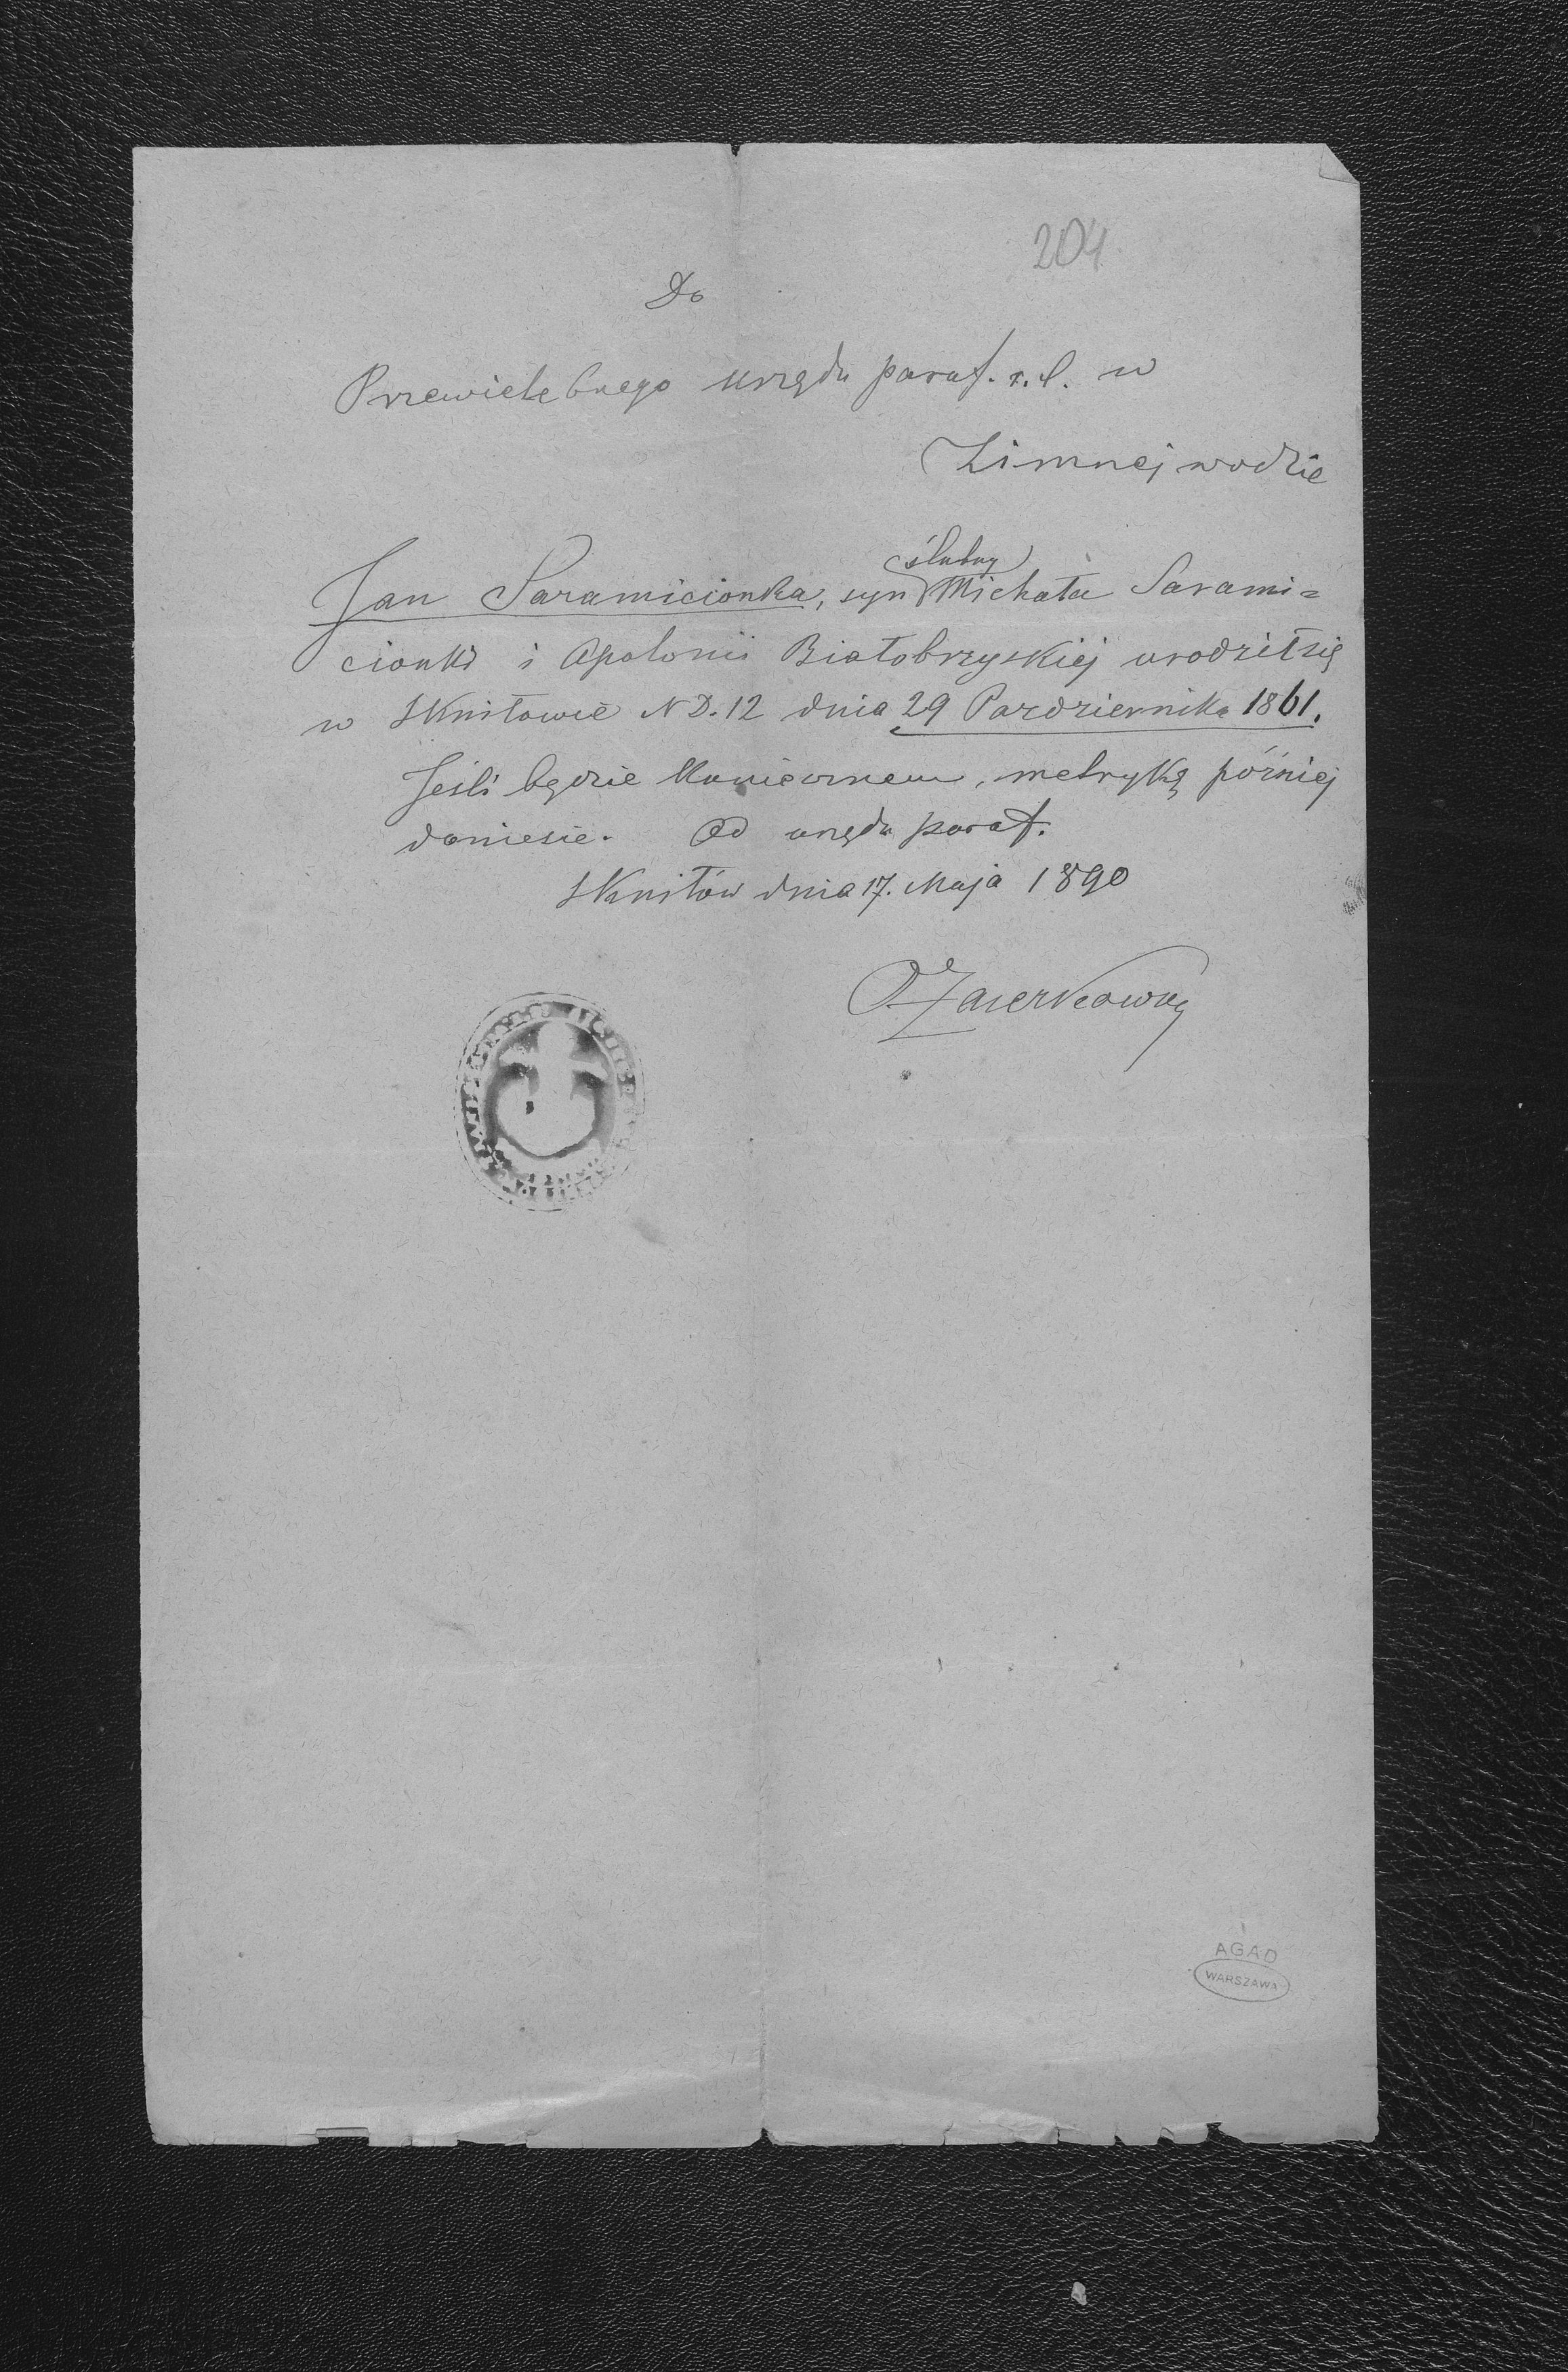 204
Do
Przewielebnego urzędu paraf. r. l. w
Zimnej wodzie
ślubny
Jan Saramicionka, syn Michała Sarami=
cionki i Apolonii Białobrzyskiej urodził się
w Skniłowie ND. 12 dnia 29 Pazdziernika 1861.
Jeśli będzie koniecznem, metrykę później
doniesie. Od urzędu paraf.
Skniłów dnia 17. Maja 1890
AGAD
WARSZAWA